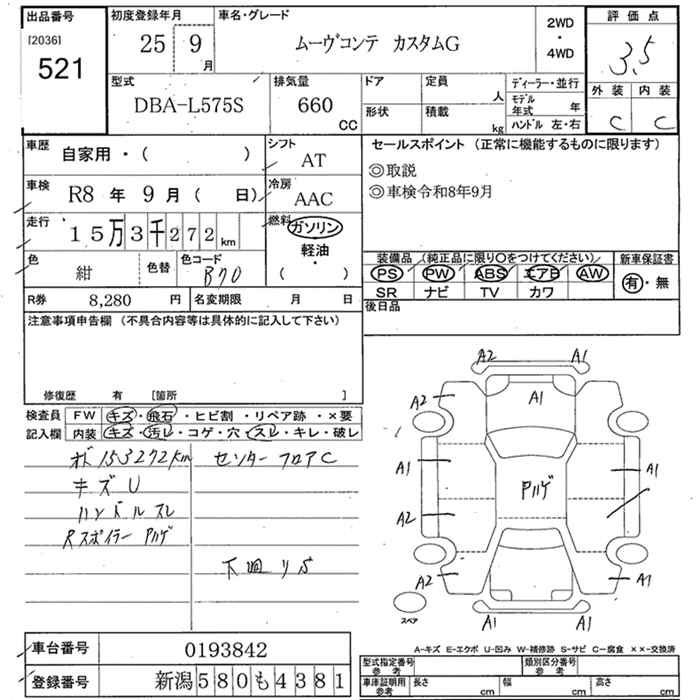 出品番号
[2036]
521
初度登録年月
25 9
月
車名・グレード
ムーヴコンテ カスタムG
2WD
・
4WD
評価点
3.5
外装 内装
C C
型式
DBA-L575S
排気量
660
CC
ドア
形状
定員
人
積載
kg
ディーラー・並行
モデル
年式 年
ハンドル 左・右
車歴
自家用・( )
シフト
AT
車検
R8 年 9 月 ( 日)
冷房
AAC
走行
15万3千272km
燃料
ガソリン
軽油
・
( )
色
紺
色替
色コード
B70
R券 8,280 円
名変期限 月 日
セールスポイント (正常に機能するものに限ります)
◎取説
◎車検令和8年9月
装備品 (純正品に限り○をつけてください)
PS PW ABS エアB AW
SR ナビ TV カワ
新車保証書
有・無
後日品
注意事項申告欄 (不具合内容等は具体的に記入して下さい)
修復歴 有 [箇所 ]
検査員 FW キズ・飛石・ヒビ割・リペア跡・×要
記入欄 内装 キズ・汚レ・コゲ・穴・スレ・キレ・破レ
オド153272km
キズU
ハンドルスレ
Rスポイラー Pハゲ
センターフロアC
下廻りS
A2 A1
A2 A1 A1
A1 A1
Pハゲ
A2
A2 A1
A1 A1
スペア
A-キズ E-エクボ U-凹み W-補修跡 S-サビ C-腐食 ××-交換済
車台番号 0193842
登録番号 新潟580も4381
型式指定番号
参考
類別区分番号
参考
車庫証明用
参考
長さ cm 幅 cm 高さ cm